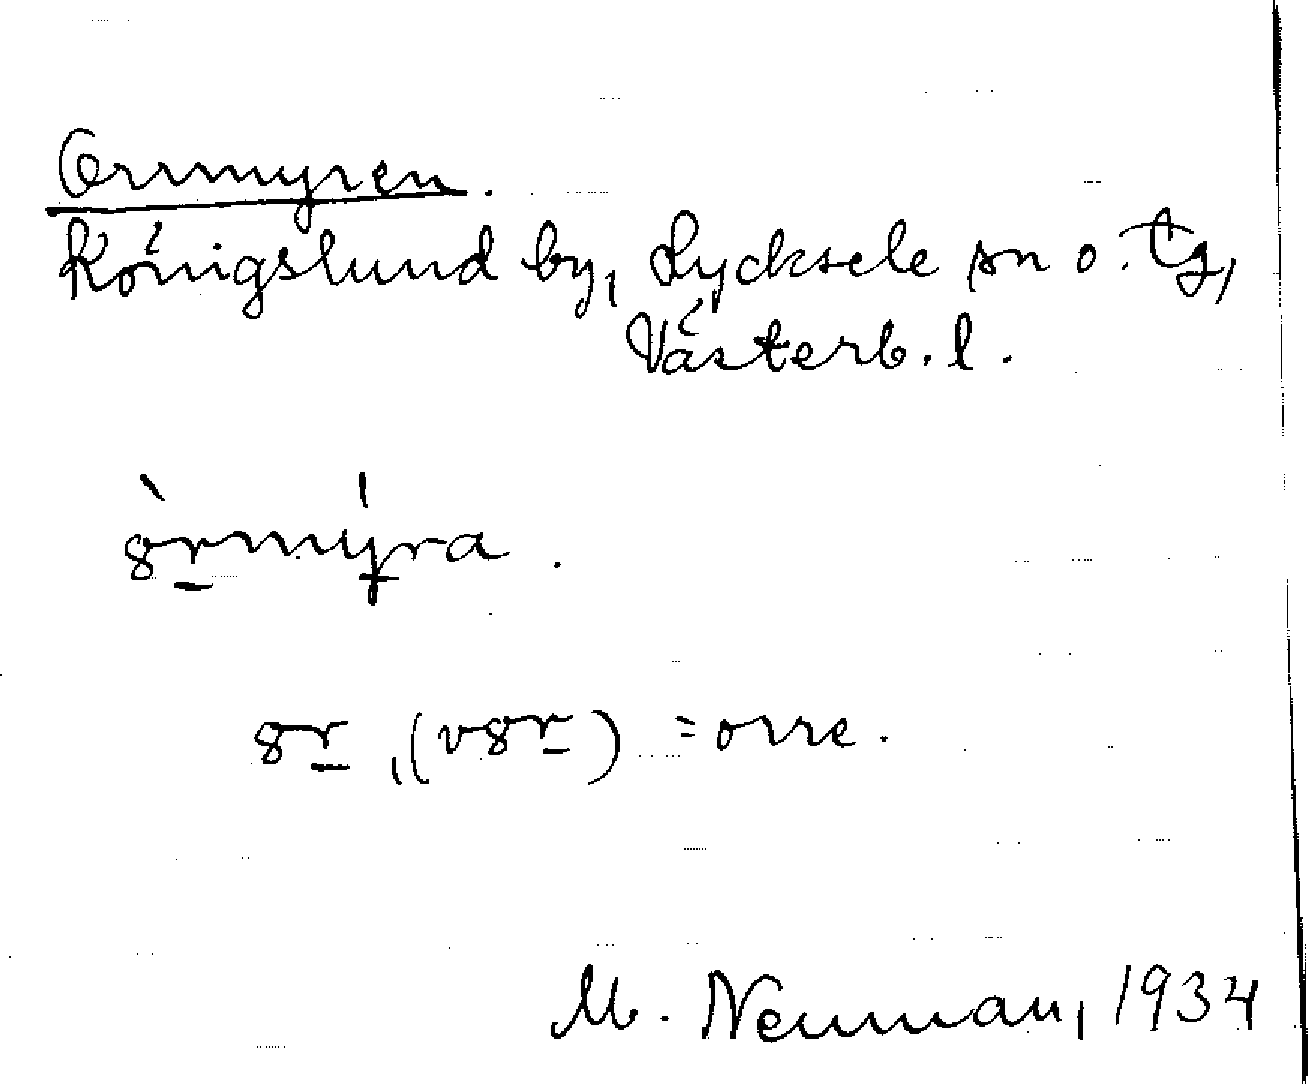 Orrmyren.
Königslund by, Lycksele sn o. tg,
Västerb. l.
= orre.
M. Neuman, 1934